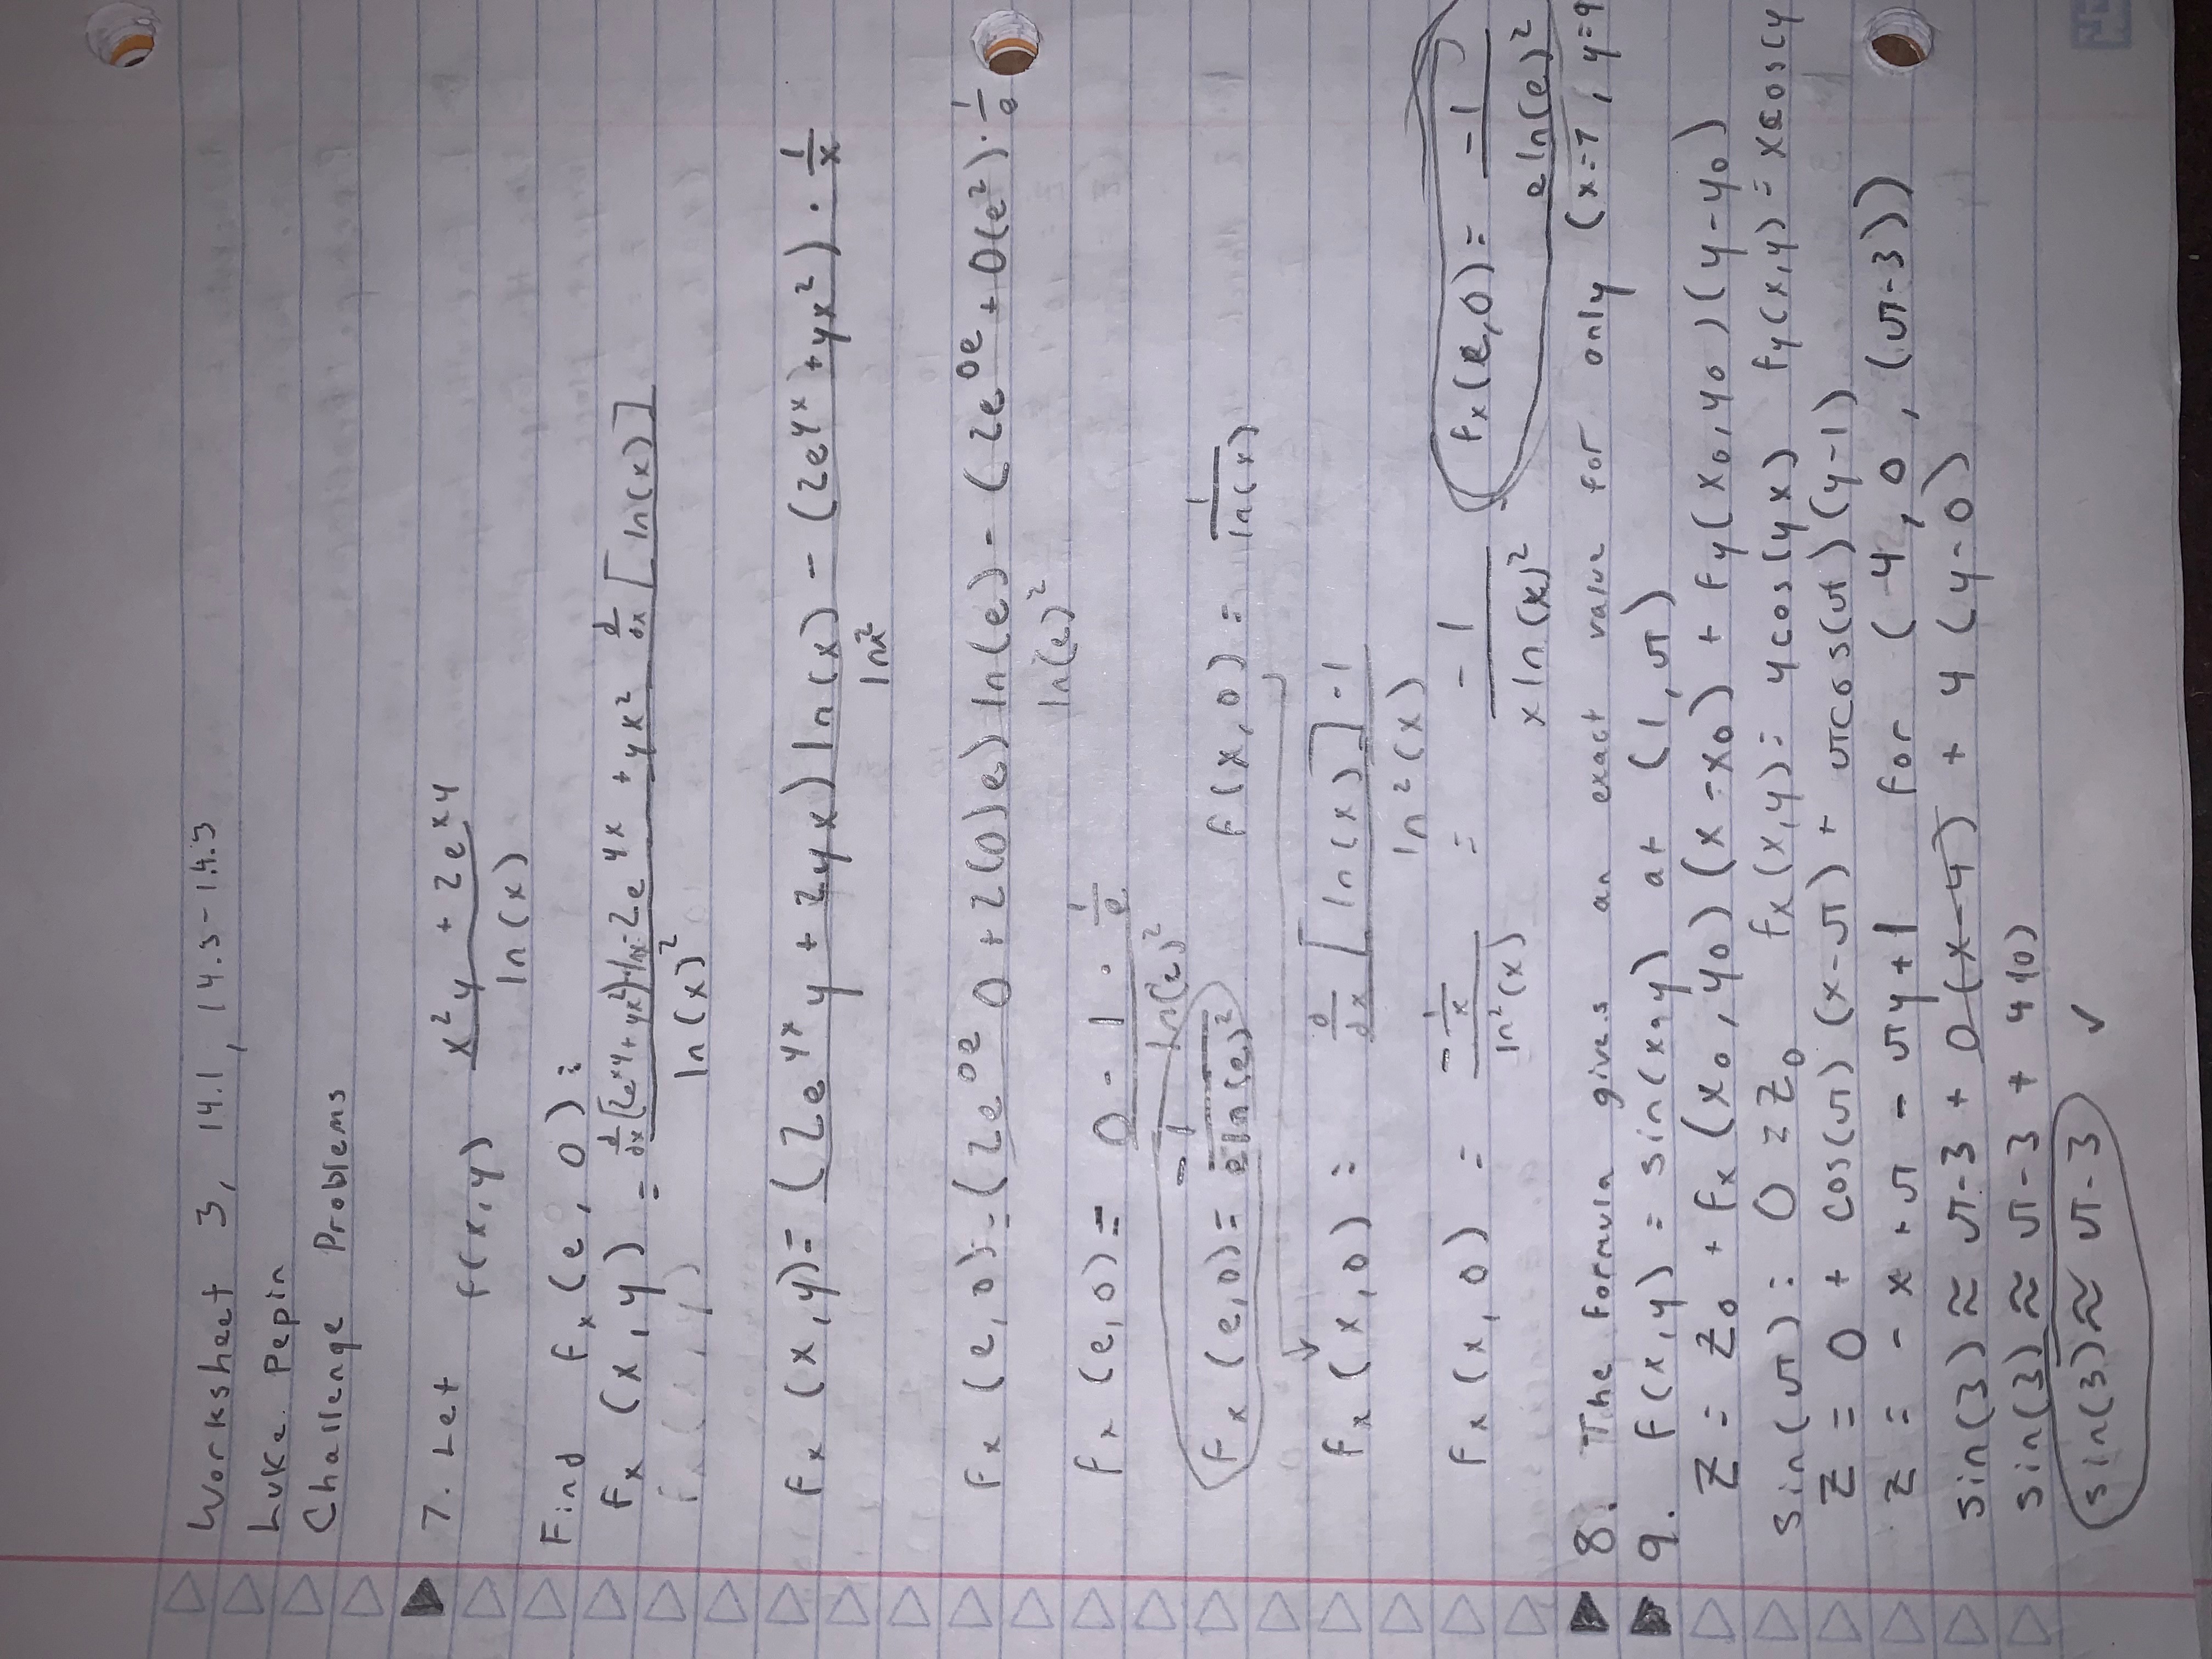 Worksheet 3, 14.1, 14.3-14.5
Luke Pepin
Challenge Problems
7. Let f(x,y) x²y + 2e^xy / ln(x)
Find fx(e, 0):
fx(x,y) = d/dx[2e^xy + yx²]·lnx - 2e^yx + yx² d/dx[ln(x)] / ln(x)²
fx(x,y)
fx(x,y) = (2e^yx y + 2yx) ln(x) - (2e^yx + yx²) · 1/x / lnx²
fx(e,0) = (2e^0e 0 + 2(0)e) ln(e) - (2e^0e + 0(e²) · 1/e / ln(e)²
fx(e,0) = 0 - 1 · 1/e / ln(e)²
fx(e,0) = -1 / e ln(e)² f(x,0) = 1 / ln(x)
fx(x,0) = d/dx [ln(x)] · -1 / ln²(x)
fx(x,0) = -1/x / ln²(x) = -1 / x ln(x)² fx(e,0) = -1 / e ln(e)²
8. The formula gives an exact value for only (x=7, y=9
9. f(x,y) = sin(x·y) at (1,π)
z = z₀ + fx(x₀,y₀)(x-x₀) + fy(x₀,y₀)(y-y₀)
sin(π) = 0 = z₀ fx(x,y) = ycos(yx) fy(x,y) = xcos(y
z = 0 + cos(π)(x-π) + πcos(π)(y-1)
z = -x + π - πy + 1 for (4, 0, (π-3))
sin(3) ≈ π-3 + 0(x-4) + 4(y-0)
sin(3) ≈ π-3 + 4(0)
sin(3) ≈ π-3 ✓